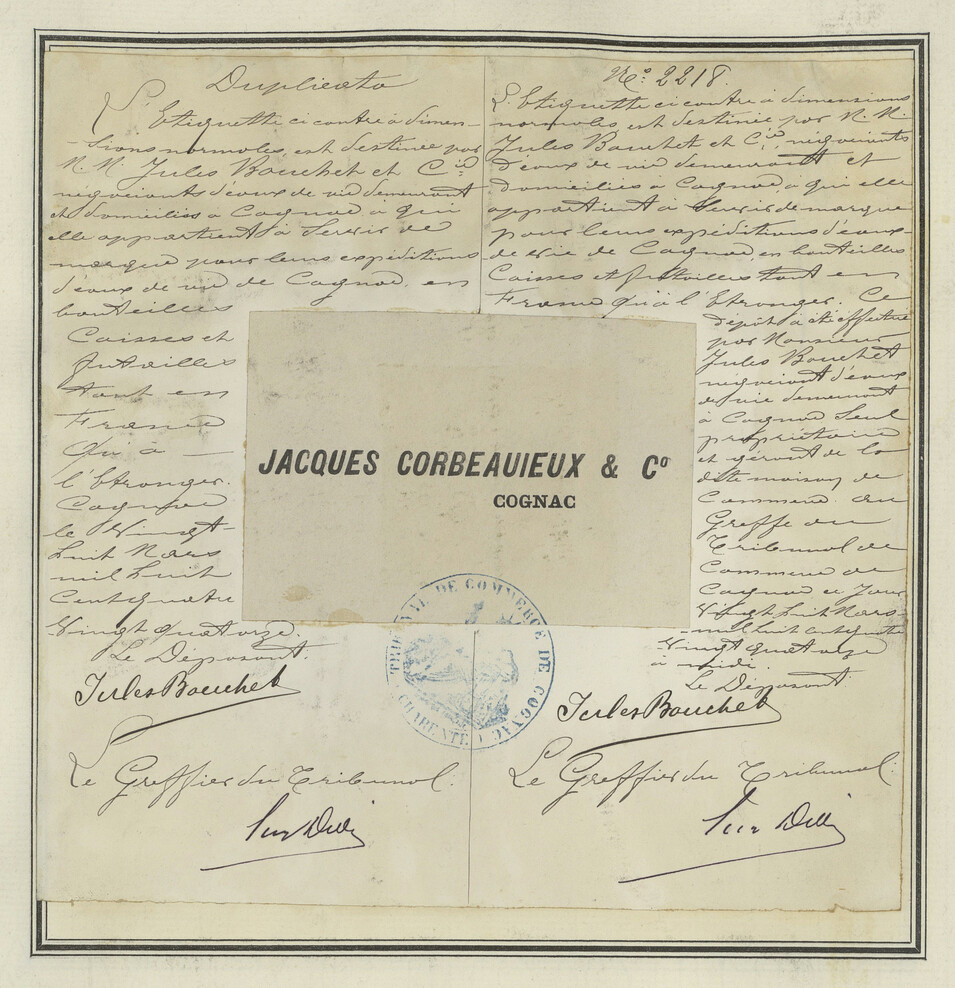 Duplicata
L'Etiquette ci contre à dimen-
sions normales, est destinée par
M.M. Jules Bouchet et Cie
négociants d'eaux de vie demeurant
et domiciliés à Cognac, à qui
elle appartient à servir de
marque pour leurs expéditions
d'eaux de vie de Cognac, en
bouteilles
Caisses et
futailles
tant en
France
qu'à
l'Etranger.
Cognac
le Vingt
huit Mars
mil huit
Cent quatre
Vingt quatorze.
Le Déposant.
Jules Bouchet
Le Greffier du Tribunal.
No. 2218.
L'Etiquette ci contre à dimensions
normales, est destinée par M.M.
Jules Bouchet et Cie, négociants
d'eaux de vie demeurant et
domiciliés à Cognac, à qui elle
appartient à servir de marque
pour leurs expéditions d'eaux-
de vie de Cognac, en bouteilles
Caisses et futailles tant en
France qu'à l'Etranger. Ce
dépôt a été effectué
par Monsieur
Jules Bouchet
négociant d'eaux
de vie demeurant
à Cognac Seul
propriétaire
et gérant de la
dite maison de
Commerce au
Greffe du
Tribunal de
Commerce de
Cognac ce Jour
Vingt huit Mars
mil huit cent quatre
Vingt quatorze
à midi.
Le Déposant.
Jules Bouchet
Le Greffier du Tribunal.
JACQUES CORBEAUIEUX & Co
COGNAC
TRIBUNAL DE COMMERCE DE COGNAC
CHARENTE